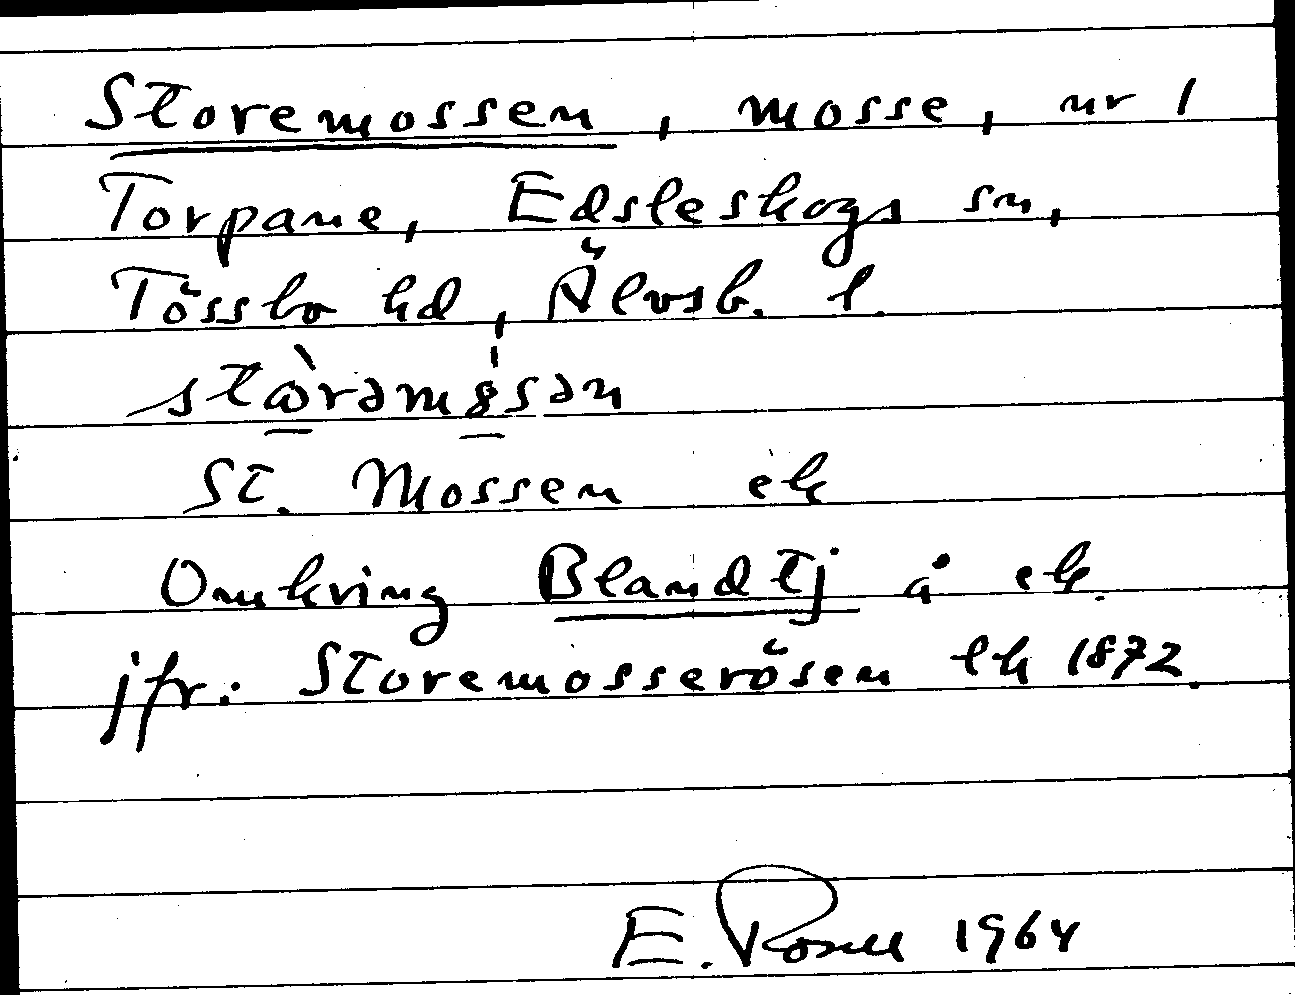 Storemossen, mosse, nr 1
Torpane, Edsleskogs sn,
Tössbo hd, Älvsb. l.
St. Mossen ek
Omkring Blandtj å ek.
jfr. Storemosserösen lk 1872.
E. 1964